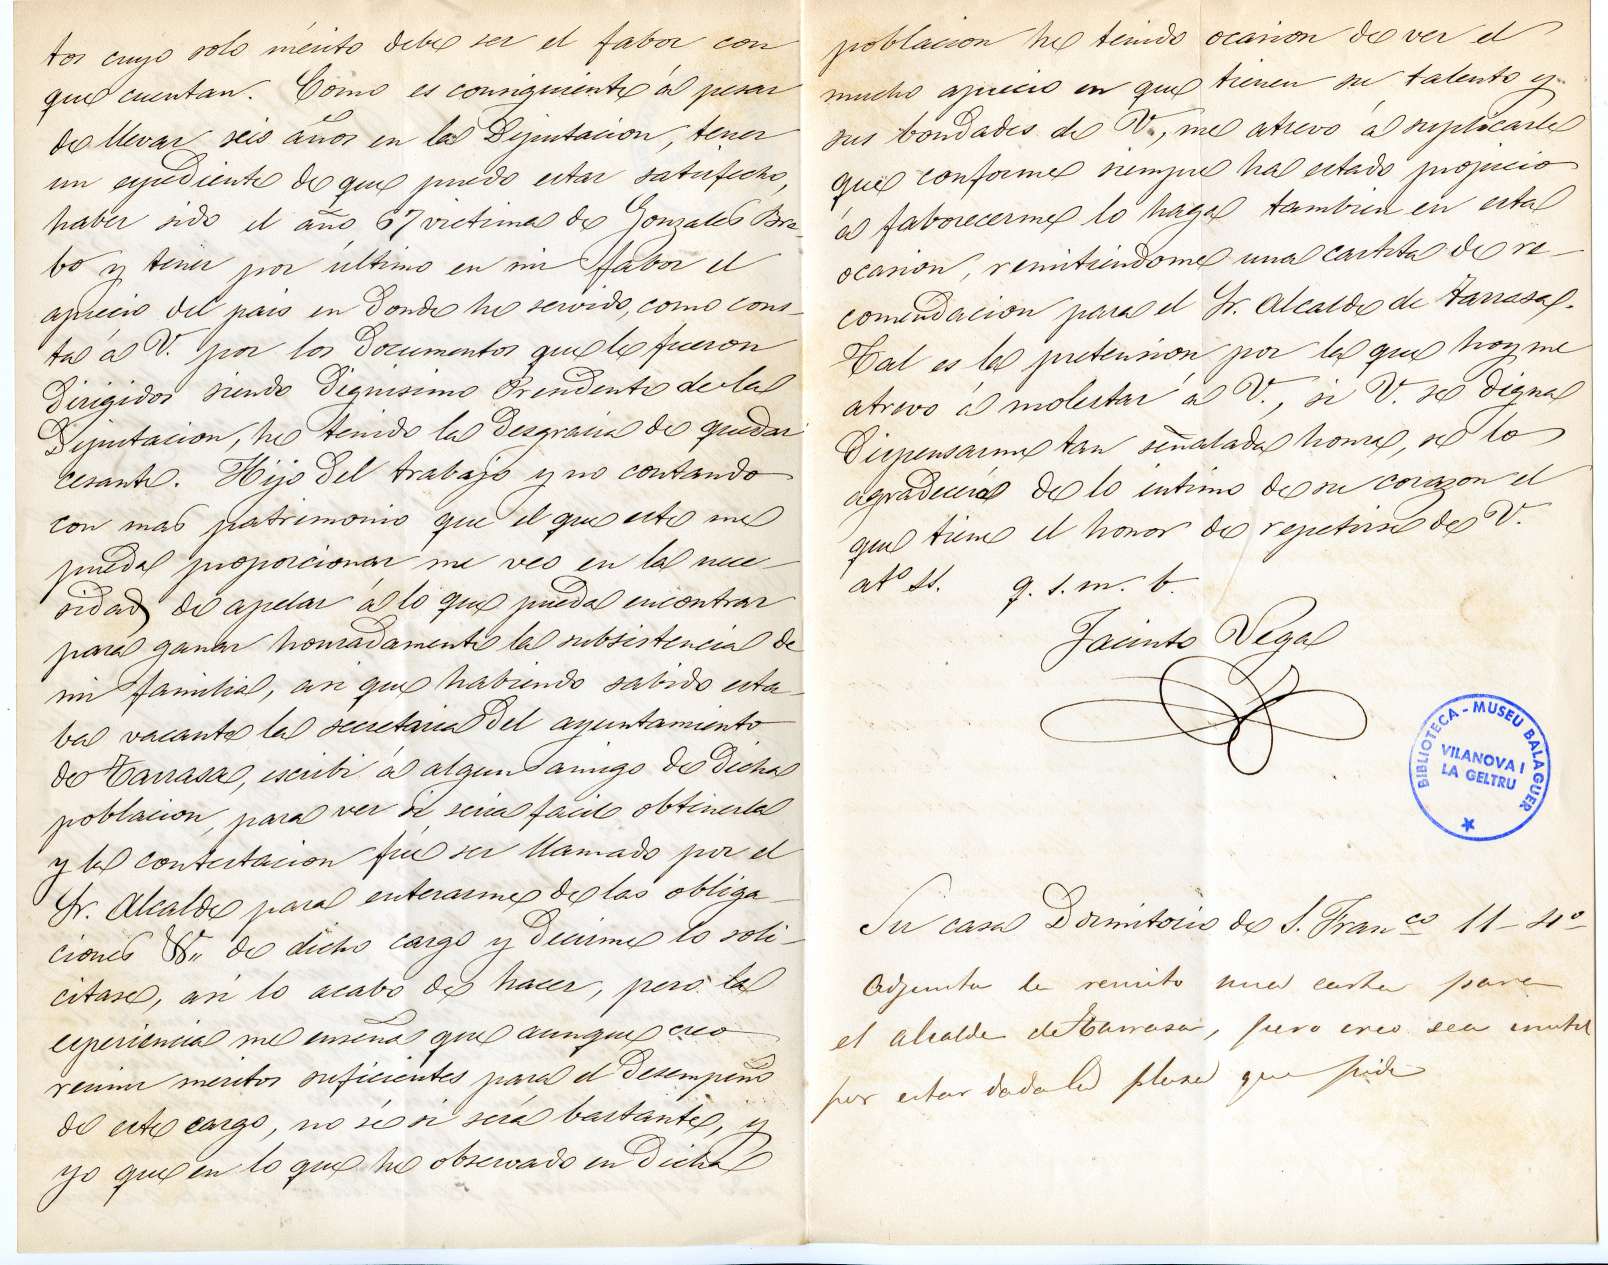 tos cuyo solo mérito debe ser el fabor con
que cuentan. Como es consiguiente á pesar
de llevar seis años en la Diputacion, tener
un espediente de que puedo estar satisfecho,
haber sido el año 67 victima de Gonzales Bra-
bo y tener por último en mi fabor el
aprecio del pais en donde he servido, como cons-
ta á V. por los documentos que le fueron
dirigidos siendo dignisimo Presidente de la
Diputacion, he tenido la desgracia de quedar
cesante. Hijo del trabajo y no contando
con mas patrimonio que el que este me
pueda proporcionar me veo en la nece-
sidad de apelar á lo que pueda encontrar
para ganar honradamente la subsistencia de
mi familia, asi que habiendo sabido esta-
ba vacante la secretaria del ayuntamiento
de Tarrasa, escribi á algun amigo de dicha
poblacion, para ver si seria facil obtenerla
y la contestacion fué ser llamado por el
Sr. Alcalde para enterarme de las obliga-
ciones de dicho cargo y decirme lo soli-
citase, asi lo acabo de hacer, pero la
esperiencia me enseña que aunque creo
reunir meritos suficientes para el desempeño
de este cargo, no sé si será bastante, y
yo que en lo que he observado en dicha
poblacion he tenido ocasion de ver el
mucho aprecio en que tienen su talento y
sus bondades de V., me atrevo á suplicarle
que conforme siempre ha estado propicio
á faborecerme lo haga tambien en esta
ocasion, remitiendome una cartita de re-
comendacion para el Sr. Alcalde de Tarrasa.
Tal es la pretension por la que hoy me
atrevo á molestar á V., si V. se digna
dispensarme tan señalada honra, se lo
agradecerá de lo intimo de su corazon el
que tiene el honor de repetirse de V.
atº ss. q. s. m. b.
Jacinto Vega
BIBLIOTECA - MUSEU BALAGUER
VILANOVA I
LA GELTRU
Su casa Dormitorio de S. Franco 11-4º
Adjunta le remito una carta para
el alcalde de Tarrasa, pero creo sea inutil
por estar dada la plasa que pide